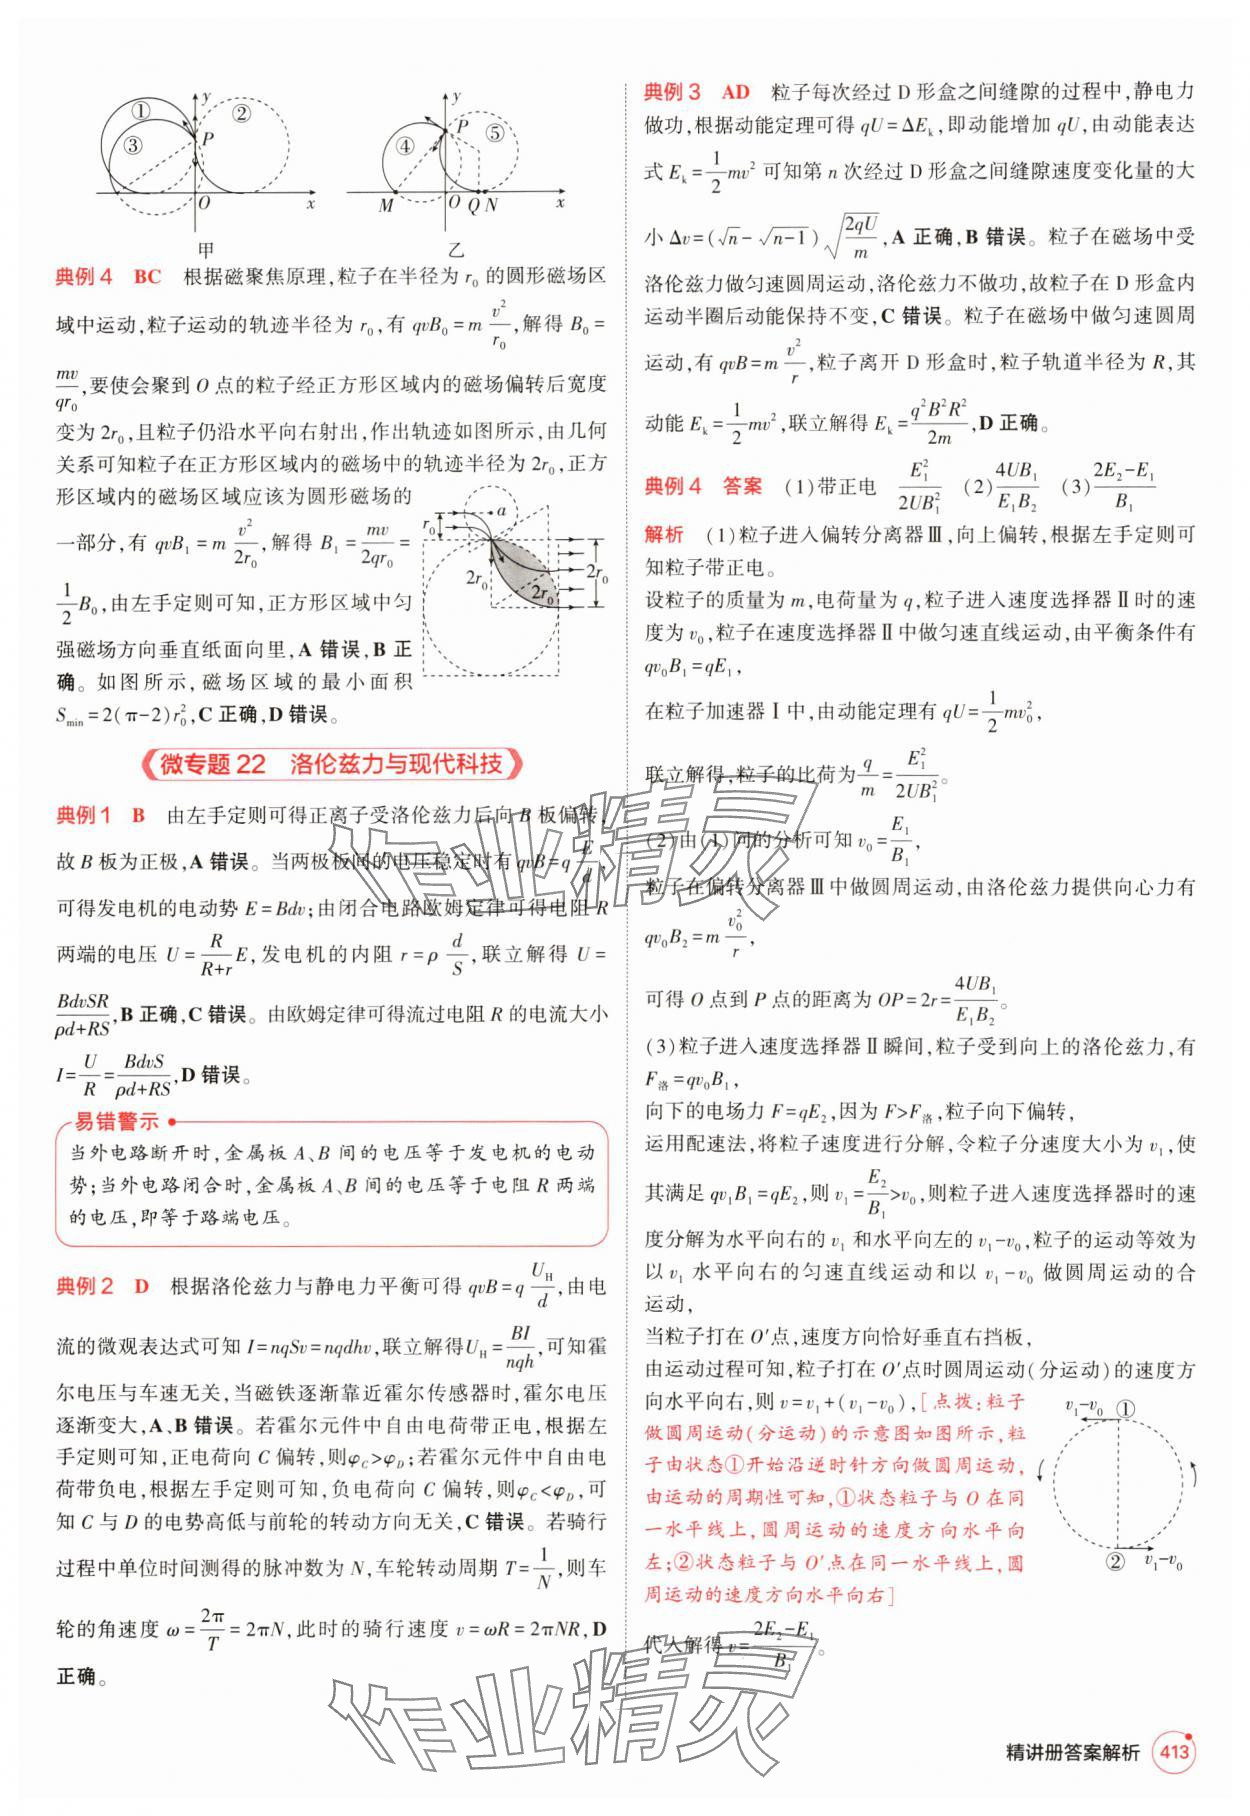 y
①
②
P
③
O
x
甲
y
P
④
⑤
M
O
Q
N
x
乙
典例4 BC 根据磁聚焦原理,粒子在半径为 r₀ 的圆形磁场区
域中运动,粒子运动的轨迹半径为 r₀,有 qvB₀=m v²/r₀,解得 B₀=
mv/qr₀,要使会聚到 O 点的粒子经正方形区域内的磁场偏转后宽度
变为 2r₀,且粒子仍沿水平向右射出,作出轨迹如图所示,由几何
关系可知粒子在正方形区域内的磁场中的轨迹半径为 2r₀,正方
形区域内的磁场区域应该为圆形磁场的
一部分,有 qvB₁=m v²/2r₀,解得 B₁=mv/2qr₀=
1/2 B₀,由左手定则可知,正方形区域中匀
强磁场方向垂直纸面向里,A 错误,B 正
确。如图所示,磁场区域的最小面积
Smin=2(π-2)r₀²,C 正确,D 错误。
r₀
a
2r₀
2r₀
2r₀
微专题 22 洛伦兹力与现代科技
典例1 B 由左手定则可得正离子受洛伦兹力后向 B 板偏转,
故 B 板为正极,A 错误。当两极板间的电压稳定时有 qvB=q E/d,
可得发电机的电动势 E=Bdv;由闭合电路欧姆定律可得电阻 R
两端的电压 U=R/(R+r) E,发电机的内阻 r=ρ d/S,联立解得 U=
BdvSR/(ρd+RS),B 正确,C 错误。由欧姆定律可得流过电阻 R 的电流大小
I=U/R=BdvS/(ρd+RS),D 错误。
易错警示
当外电路断开时,金属板 A、B 间的电压等于发电机的电动
势;当外电路闭合时,金属板 A、B 间的电压等于电阻 R 两端
的电压,即等于路端电压。
典例2 D 根据洛伦兹力与静电力平衡可得 qvB=q U_H/d,由电
流的微观表达式可知 I=nqSv=nqdhv,联立解得U_H=BI/nqh,可知霍
尔电压与车速无关,当磁铁逐渐靠近霍尔传感器时,霍尔电压
逐渐变大,A、B 错误。若霍尔元件中自由电荷带正电,根据左
手定则可知,正电荷向 C 偏转,则φ_C>φ_D;若霍尔元件中自由电
荷带负电,根据左手定则可知,负电荷向 C 偏转,则φ_C<φ_D,可
知 C 与 D 的电势高低与前轮的转动方向无关,C 错误。若骑行
过程中单位时间测得的脉冲数为 N,车轮转动周期 T=1/N,则车
轮的角速度 ω=2π/T=2πN,此时的骑行速度 v=ωR=2πNR,D
正确。
典例3 AD 粒子每次经过 D 形盒之间缝隙的过程中,静电力
做功,根据动能定理可得 qU=ΔE_k,即动能增加 qU,由动能表达
式 E_k=1/2 mv² 可知第 n 次经过 D 形盒之间缝隙速度变化量的大
小 Δv=(√n-√(n-1))√(2qU/m),A 正确,B 错误。粒子在磁场中受
洛伦兹力做匀速圆周运动,洛伦兹力不做功,故粒子在 D 形盒内
运动半圈后动能保持不变,C 错误。粒子在磁场中做匀速圆周
运动,有 qvB=m v²/r,粒子离开 D 形盒时,粒子轨道半径为 R,其
动能 E_k=1/2 mv²,联立解得 E_k=q²B²R²/2m,D 正确。
典例4 答案 (1)带正电 E₁²/2UB₁² (2)4UB₁/E₁B₂ (3)(2E₂-E₁)/B₁
解析 (1)粒子进入偏转分离器Ⅲ,向上偏转,根据左手定则可
知粒子带正电。
设粒子的质量为 m,电荷量为 q,粒子进入速度选择器Ⅱ时的速
度为 v₀,粒子在速度选择器Ⅱ中做匀速直线运动,由平衡条件有
qv₀B₁=qE₁,
在粒子加速器Ⅰ中,由动能定理有 qU=1/2 mv₀²,
联立解得,粒子的比荷为 q/m=E₁²/2UB₁²。
(2)由(1)问的分析可知 v₀=E₁/B₁,
粒子在偏转分离器Ⅲ中做圆周运动,由洛伦兹力提供向心力有
qv₀B₂=m v₀²/r,
可得 O 点到 P 点的距离为 OP=2r=4UB₁/E₁B₂。
(3)粒子进入速度选择器Ⅱ瞬间,粒子受到向上的洛伦兹力,有
F洛=qv₀B₁,
向下的电场力 F=qE₂,因为 F>F洛,粒子向下偏转,
运用配速法,将粒子速度进行分解,令粒子分速度大小为 v₁,使
其满足 qv₁B₁=qE₂,则 v₁=E₂/B₁>v₀,则粒子进入速度选择器时的速
度分解为水平向右的 v₁ 和水平向左的 v₁-v₀,粒子的运动等效为
以 v₁ 水平向右的匀速直线运动和以 v₁-v₀ 做圆周运动的合
运动,
当粒子打在 O′点,速度方向恰好垂直右挡板,
由运动过程可知,粒子打在 O′点时圆周运动(分运动)的速度方
向水平向右,则 v=v₁+(v₁-v₀),[点拨:粒子
做圆周运动(分运动)的示意图如图所示,粒
子由状态①开始沿逆时针方向做圆周运动,
由运动的周期性可知,①状态粒子与 O 在同
一水平线上,圆周运动的速度方向水平向
左;②状态粒子与 O′点在同一水平线上,圆
周运动的速度方向水平向右]
v₁-v₀ ①
② v₁-v₀
代入解得 v=(2E₂-E₁)/B₁。
作业精灵
作业精灵
精讲册答案解析 413